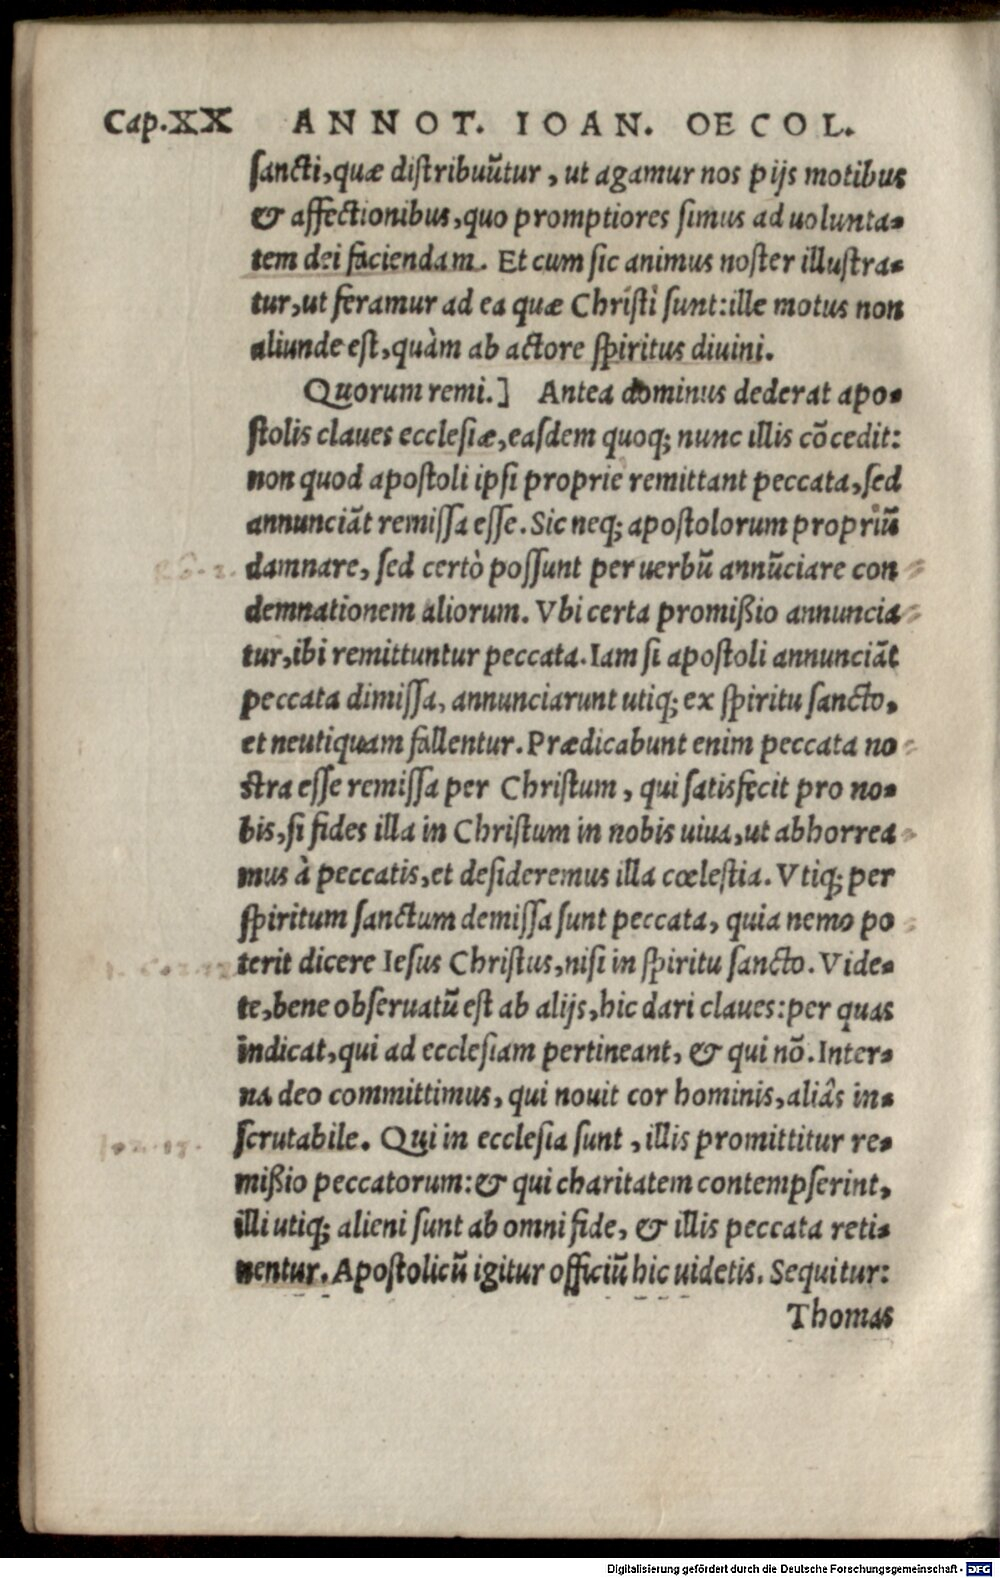 Cap.XX ANNOT. IOAN. OECOL.
sancti,quæ distribuūtur, ut agamur nos pijs motibus
& affectionibus,quo promptiores simus ad uolunta-
tem dei faciendam. Et cum sic animus noster illustra-
tur,ut feramur ad ea quæ Christi sunt:ille motus non
aliunde est,quàm ab actore spiritus diuini.
Quorum remi.] Antea dominus dederat apo-
stolis claues ecclesiæ,easdem quoq; nunc illis cōcedit:
non quod apostoli ipsi proprie remittant peccata,sed
annunciāt remissa esse. Sic neq; apostolorum propriū
damnare, sed certò possunt per uerbū annūciare con-
demnationem aliorum. Vbi certa promißio annuncia-
tur,ibi remittuntur peccata. Iam si apostoli annunciāt
peccata dimissa, annunciarunt utiq; ex spiritu sancto,
et neutiquam fallentur. Prædicabunt enim peccata no-
stra esse remissa per Christum, qui satisfecit pro no-
bis,si fides illa in Christum in nobis uiua,ut abhorrea-
mus à peccatis,et desideremus illa cœlestia. Vtiq; per
spiritum sanctum demissa sunt peccata, quia nemo po-
terit dicere Iesus Christus,nisi in spiritu sancto. Vide-
te,bene obseruatū est ab alijs,hic dari claues:per quas
indicat,qui ad ecclesiam pertineant, & qui nō. Inter-
na deo committimus, qui nouit cor hominis,aliâs in-
scrutabile. Qui in ecclesia sunt, illis promittitur re-
mißio peccatorum:& qui charitatem contempserint,
illi utiq; alieni sunt ab omni fide, & illis peccata reti-
nentur. Apostolicū igitur officiū hic uidetis. Sequitur:
Thomas
Digitalisierung gefördert durch die Deutsche Forschungsgemeinschaft - DFG